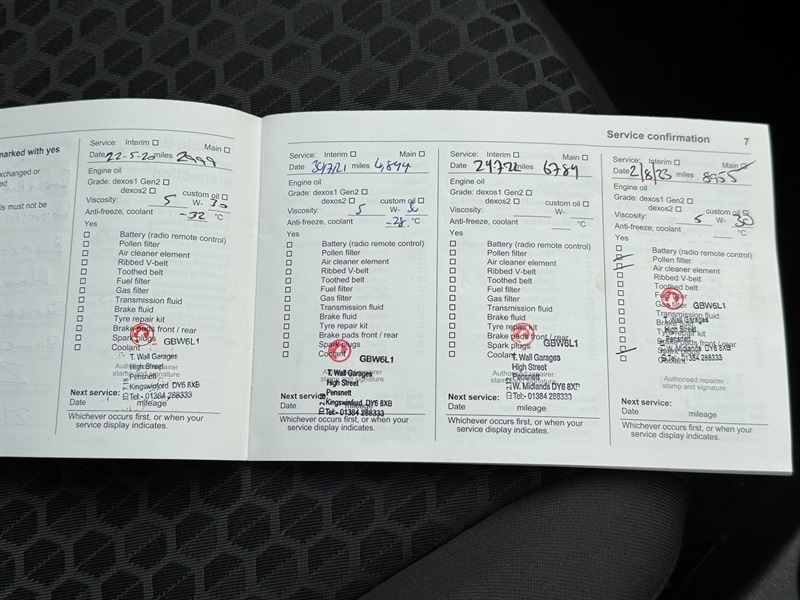 marked with yes
xchanged or
ed
ls must not be
Service: Interim Main
Date 22-5-20 miles 2999
Engine oil
Grade: dexos1 Gen2
dexos2 custom oil
Viscosity: 5 W-
Anti-freeze, coolant -32 °C
Yes
Battery (radio remote control)
Pollen filter
Air cleaner element
Ribbed V-belt
Toothed belt
Fuel filter
Gas filter
Transmission fluid
Brake fluid
Tyre repair kit
Brake pads front / rear
Spark plugs GBW6L1
Coolant
T. Wall Garages
High Street
Pensnett
Kingswinford DY6 8XB
Tel:- 01384 288333
Next service:
Date mileage
Whichever occurs first, or when your
service display indicates.
Service: Interim Main
Date miles 4,844
Engine oil
Grade: dexos1 Gen2
dexos2 custom oil
Viscosity: 5 W-
Anti-freeze, coolant -28 °C
Yes
Battery (radio remote control)
Pollen filter
Air cleaner element
Ribbed V-belt
Toothed belt
Fuel filter
Gas filter
Transmission fluid
Brake fluid
Tyre repair kit
Brake pads front / rear
Spark plugs
Coolant GBW6L1
T. Wall Garages
High Street
Pensnett
Kingswinford DY6 8XB
Tel:- 01384 288333
Next service:
Date mileage
Whichever occurs first, or when your
service display indicates.
Service confirmation 7
Service: Interim Main
Date miles 6784
Engine oil
Grade: dexos1 Gen2
dexos2 custom oil
Viscosity: W-
Anti-freeze, coolant °C
Yes
Battery (radio remote control)
Pollen filter
Air cleaner element
Ribbed V-belt
Toothed belt
Fuel filter
Gas filter
Transmission fluid
Brake fluid
Tyre repair kit
Brake pads front / rear
Spark plugs GBW6L1
Coolant
T. Wall Garages
High Street
Pensnett
W. Midlands DY6 8XP
Tel:- 01384 288333
Next service:
Date mileage
Whichever occurs first, or when your
service display indicates.
Service: Interim Main
Date 2/8/23 miles 8955
Engine oil
Grade: dexos1 Gen2
dexos2 custom oil
Viscosity: 5 W- 30
Anti-freeze, coolant °C
Yes
Battery (radio remote control)
Pollen filter
Air cleaner element
Ribbed V-belt
Toothed belt
Gas filter GBW6L1
Transmission fluid
T. Wall Garages
High Street
Pensnett
W. Midlands DY6 8XP
Tel:- 01384 288333
Coolant
Authorised repairer
stamp and signature
Next service:
Date mileage
Whichever occurs first, or when your
service display indicates.